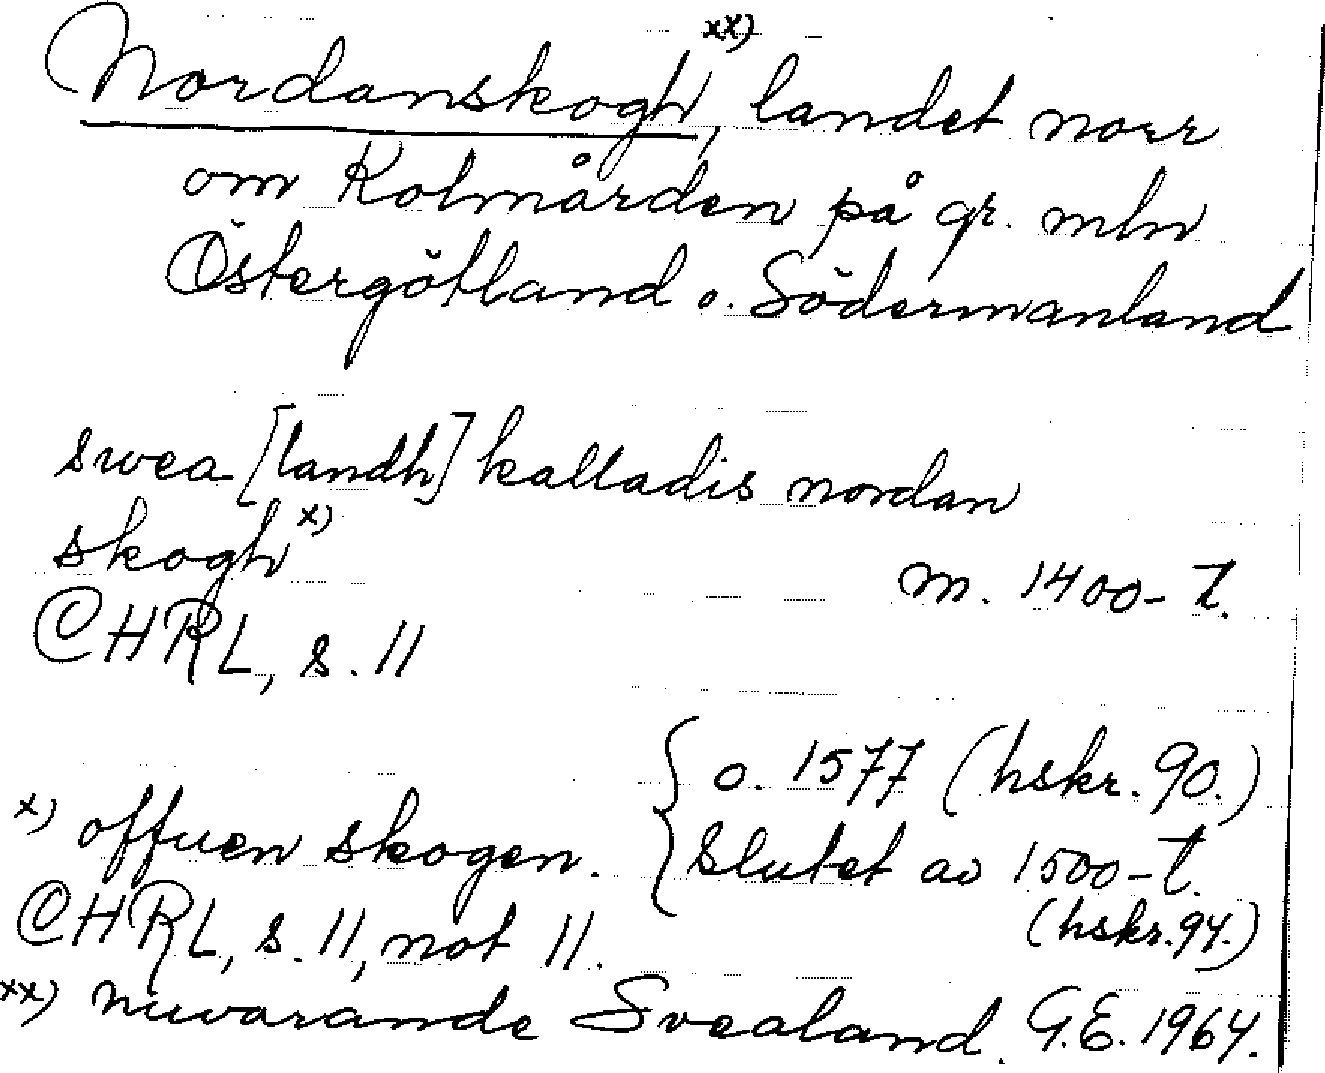 Nordanskogh, xx) landet norr
om Kolmården på gr. mln
Östergötland o. Södermanland
swea [landh] kalladis nordan
skogh x)
m. 1400-t.
CHRL, s. 11
x) offuen skogen. { o. 1577 (hskr. 90.)
slutet av 1500-t.
(hskr. 94.)
CHRL, s. 11, not 11.
xx) nuvarande Svealand. G.E. 1964.